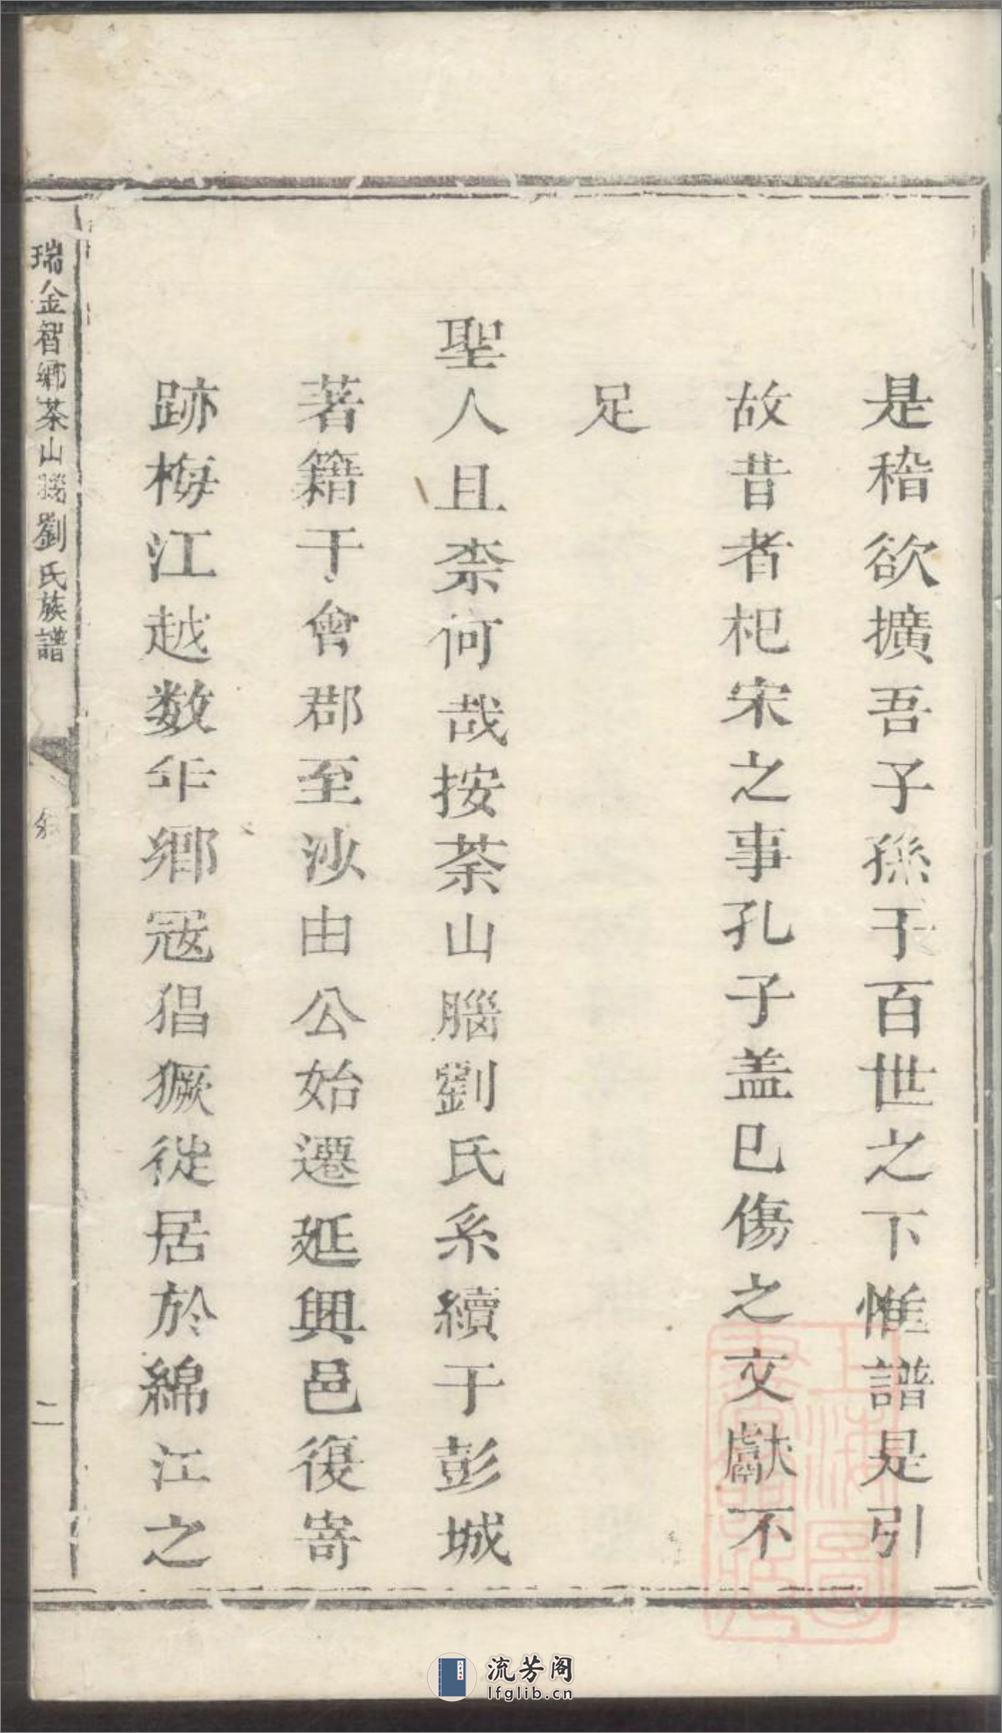 是稽欲擴吾子孫于百世之下惟譜是引
故昔者杞宋之事孔子盖已傷之文獻不
足
聖人且柰何哉按茶山腦劉氏系續于彭城
著籍于會郡至沙由公始遷延興邑復寄
跡梅江越数年鄉冦猖獗徙居於綿江之
瑞金智鄉茶山腦劉氏族譜
二
流芳阁
lfglib.cn